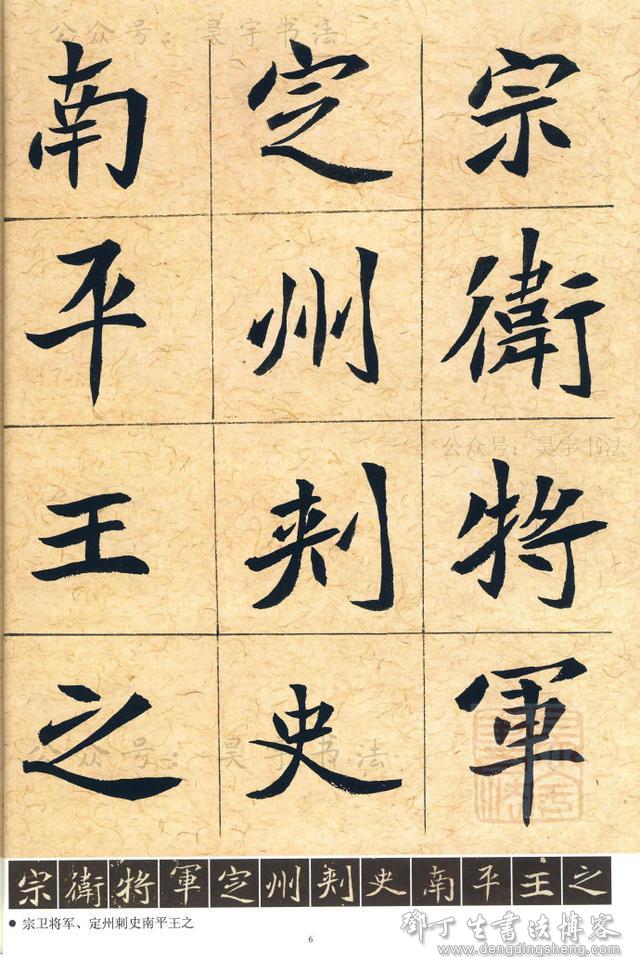 公众号：昊宇书法
宗衛將軍
定州刾史
南平王之
公众号：昊宇书法
公众号：昊宇书法
宗衛將軍定州刾史南平王之
● 宗卫将军、定州刺史南平王之
6
鄧丁生書法博客
www.dengdingsheng.com